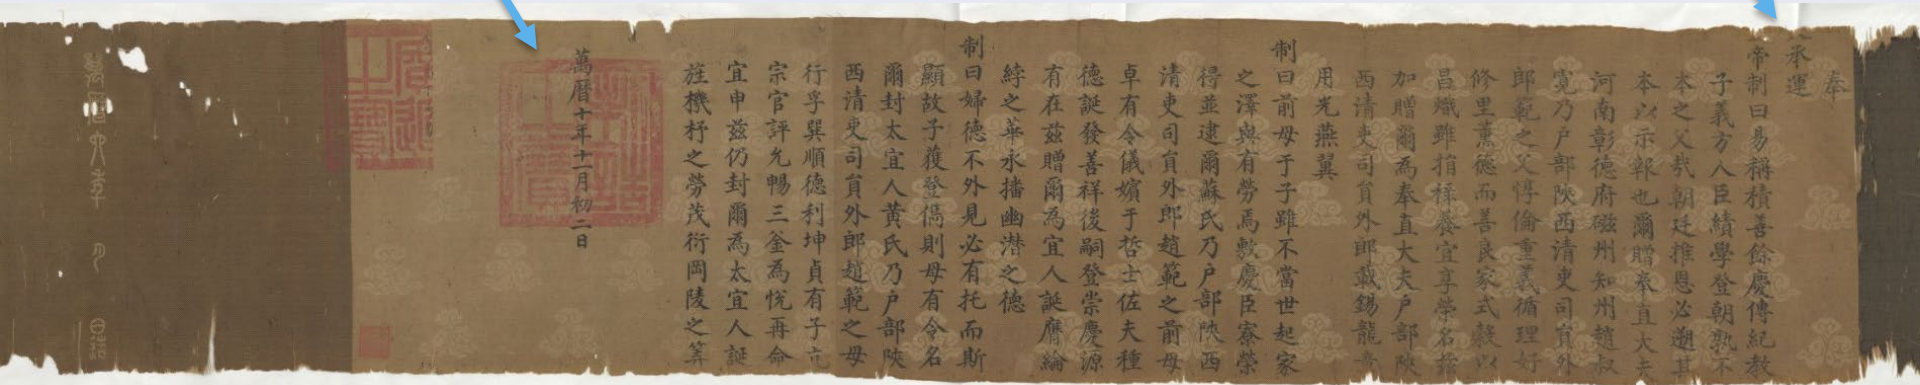 奉
承運
帝制曰易稱積善餘慶傳紀教
子義方人臣績學登朝孰不
本之父哉朝廷推恩必遡其
本以示報也爾贈奉直大夫
河南彰德府磁州知州趙叔
寬乃戶部陝西清吏司員外
郎範之父惇倫重義循理好
修里薰德而善良家式穀以
昌熾雖捐祿養宜享榮名茲
加贈爾為奉直大夫戶部陝
西清吏司員外郎載錫龍章
用光燕翼
制曰前母于子雖不當世起家
之澤與有勞焉敷慶臣寮榮
得並逮爾蘇氏乃戶部陝西
清吏司員外郎趙範之前母
卓有令儀嬪于哲士佐夫種
德誕發善祥後嗣登崇慶源
有在茲贈爾為宜人誕膺綸
綍之華永播幽潛之德
制曰婦德不外見必有托而斯
顯故子獲登儁則母有令名
爾封太宜人黃氏乃戶部陝
西清吏司員外郎趙範之母
行孚巽順德利坤貞有子克
宗官評允暢三釜為悅再命
宜申茲仍封爾為太宜人誕
旌機杼之勞茂衍岡陵之筭
萬曆十年十二月初二日
制誥之寶
廣運之寶